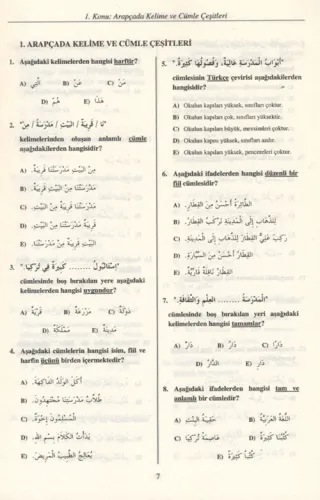 1. Konu: Arapçada Kelime ve Cümle Çeşitleri
1. ARAPÇADA KELİME VE CÜMLE ÇEŞİTLERİ
1. Aşağıdaki kelimelerden hangisi harftir?
A) الَّتِي B) عَنْ C) مَنْ
D) هُمْ E) هَذَا
2. "نَا / قَرِيبَةٌ / الْبَيْتِ / مَدْرَسَةٌ / مِنْ"
kelimelerinden oluşan anlamlı cümle
aşağıdakilerden hangisidir?
A) مِنَ الْبَيْتِ مَدْرَسَتُنَا قَرِيبَةٌ.
B) قَرِيبَةٌ مَدْرَسَتُنَا مِنَ الْبَيْتِ.
C) مَدْرَسَتُنَا قَرِيبَةٌ مِنَ الْبَيْتِ.
D)
E)
3. "إِسْتَانْبُولُ ........ كَبِيرَةٌ فِي تُرْكِيَا."
cümlesinde boş bırakılan yere aşağıdaki
kelimelerden hangisi uygundur?
A) قَرْيَةٌ B) مَزْرَعَةٌ C) دَوْلَةٌ
D) مَمْلَكَةٌ E) مَدِينَةٌ
4. Aşağıdaki cümlelerin hangisi isim, fiil ve
harfin üçünü birden içermektedir?
A) أَكَلَ الْوَلَدُ الْفَاكِهَةَ.
B) طُلَّابُ مَدْرَسَتِنَا مُجْتَهِدُونَ.
C) الْمُسْلِمُونَ إِخْوَةٌ.
D) بَدَأْتُ الْكَلَامَ بِسْمِ اللهِ.
E) يُعَالِجُ الطَّبِيبُ الْمَرِيضَ.
5. "أَبْوَابُ الْمَدْرَسَةِ عَالِيَةٌ، وَفُصُولُهَا كَثِيرَةٌ."
cümlesinin Türkçe çevirisi aşağıdakilerden
hangisidir?
A) Okulun kapıları yüksek, sınıfları çoktur.
B) Okulun kapıları çok, sınıfları yüksektir.
C) Okulun kapıları büyük, mevsimleri çoktur.
D) Okulun kapısı yüksek, sınıfları azdır.
E) Okulun kapıları yüksek, pencereleri çoktur.
6. Aşağıdaki ifadelerden hangisi düzenli bir
fiil cümlesidir?
A) الطَّائِرَةُ أَحْسَنُ مِنَ الْقِطَارِ.
B) لِلذَّهَابِ إِلَى الْمَدِينَةِ تَرْكَبُ الْقِطَارَ.
C) رَكِبَ عَلِيٌّ الْقِطَارَ لِلذَّهَابِ إِلَى الْمَدِينَةِ.
D) الْقِطَارُ أَحْسَنُ مِنَ السَّيَّارَةِ.
E)
7. "الْمَدْرَسَةُ ........ الْعِلْمِ وَالثَّقَافَةِ."
cümlesinde boş bırakılan yeri aşağıdaki
kelimelerden hangisi tamamlar?
A) دَارٌ B) دَارُ C) دَارًا
D) الدَّارُ E) دَارِ
8. Aşağıdaki ifadelerden hangisi tam ve
anlamlı bir cümledir?
A) حَقِيبَةُ الْبِنْتِ B) اللُّغَةُ الْعَرَبِيَّةُ
C) عَاصِمَةُ تُرْكِيَا D) كُتُبُنَا كَثِيرَةٌ
E) كُتُبٌ كَثِيرَةٌ
7